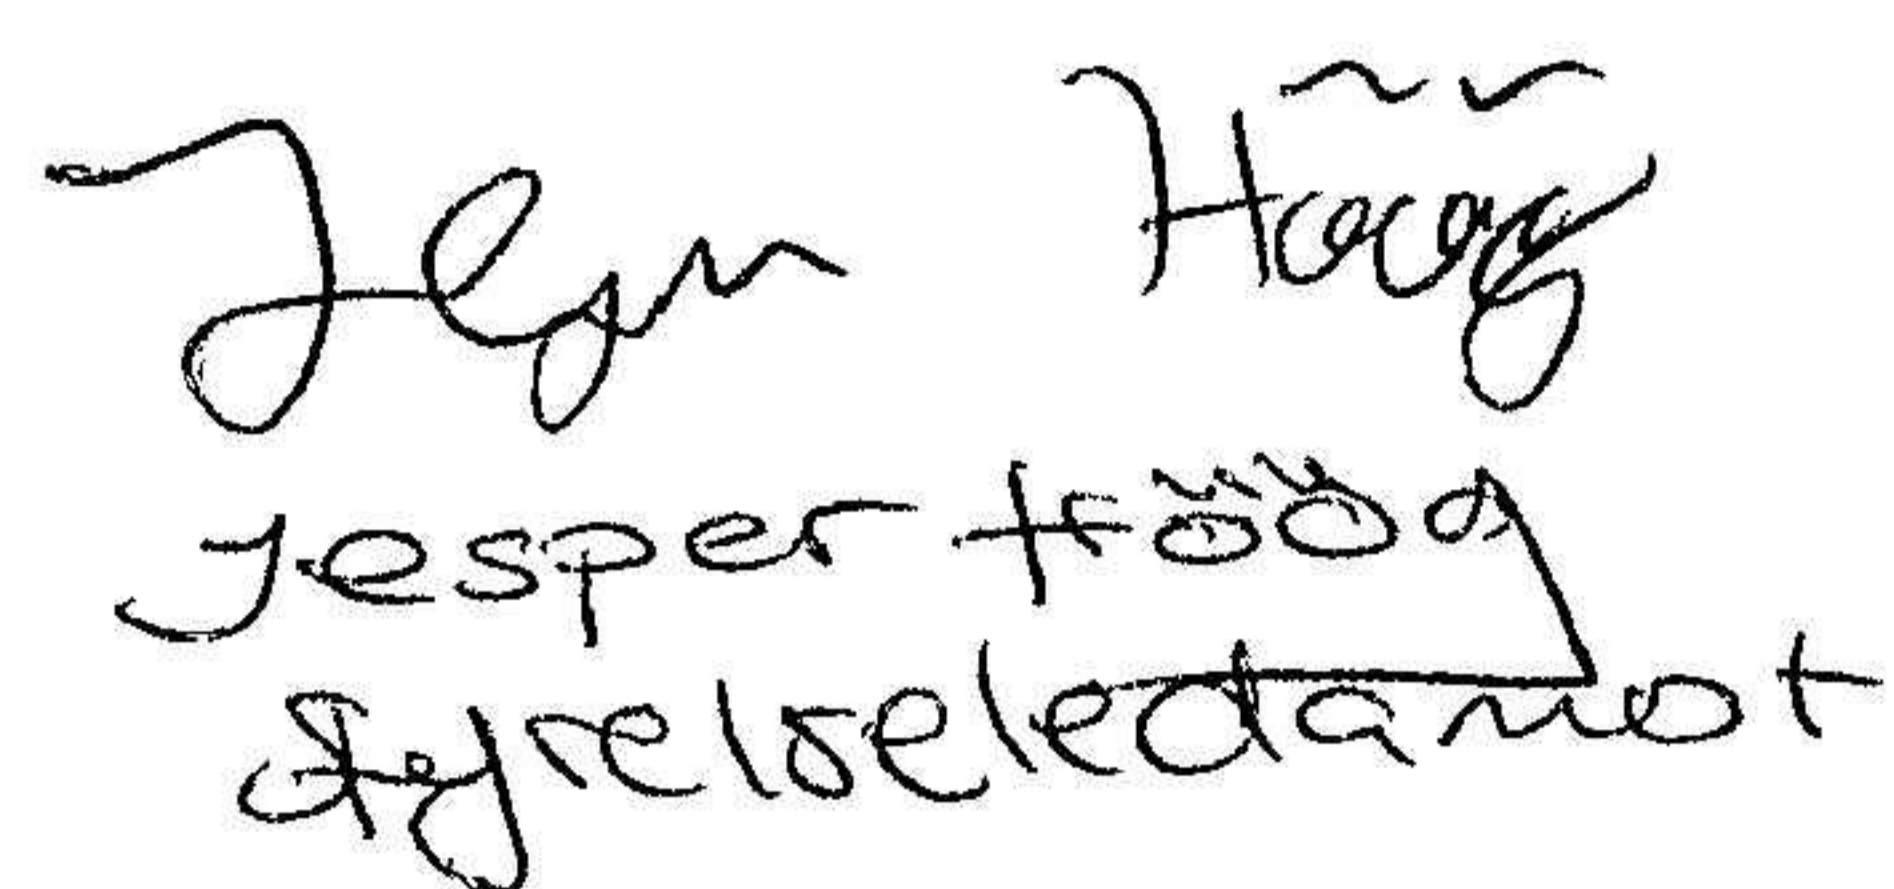 Jesper Höög
Jesper Höög
Styrelseledamot